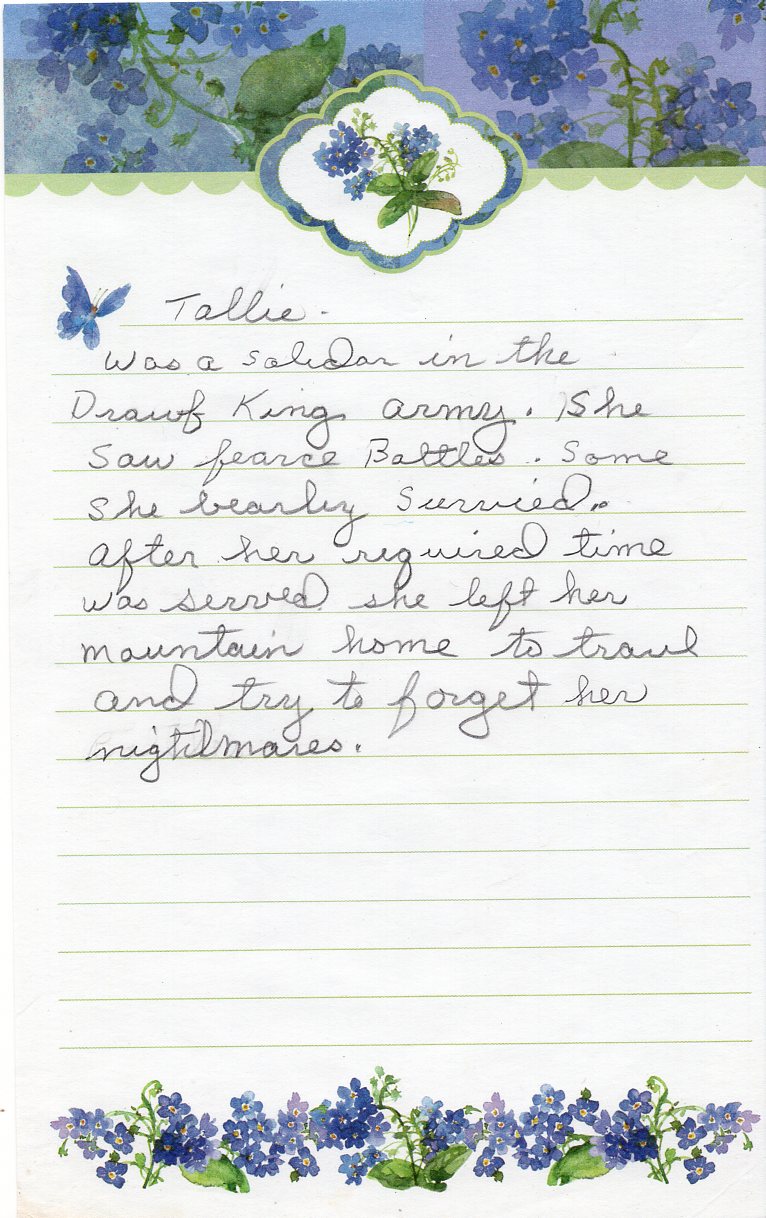 Tallie.
was a solidar in the
Drawf King army. She
Saw fearce Battles. Some
She bearley Survied..
After her required time
was served she left her
mountain home to travl
and try to forget her
nightmares.